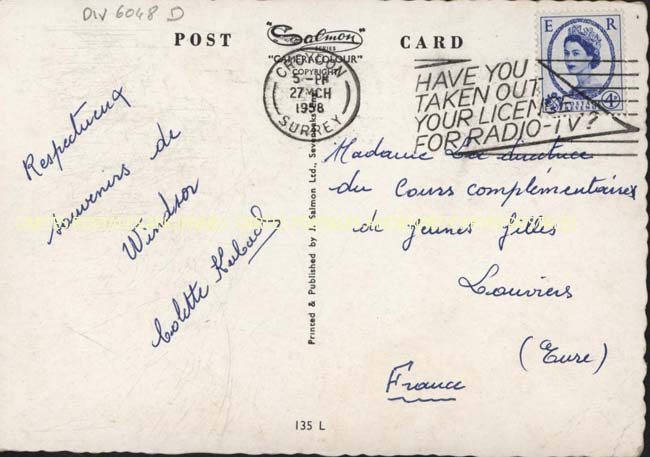 DIV 6048 D
POST CARD
"Salmon"
SERIES
"CAMERACOLOUR"
COPYRIGHT
CROYDON
5 - PM
27 MCH
1958
SURREY
HAVE YOU
TAKEN OUT
YOUR LICENCE
FOR RADIO-TV?
E R
Respectueux
souvenirs de
Windsor
Colette
Printed & Published by J. Salmon Ltd., Sevenoaks
Madame La directrice
du Cours complémentaire
de Jeunes filles
Louviers
(Eure)
France
135 L